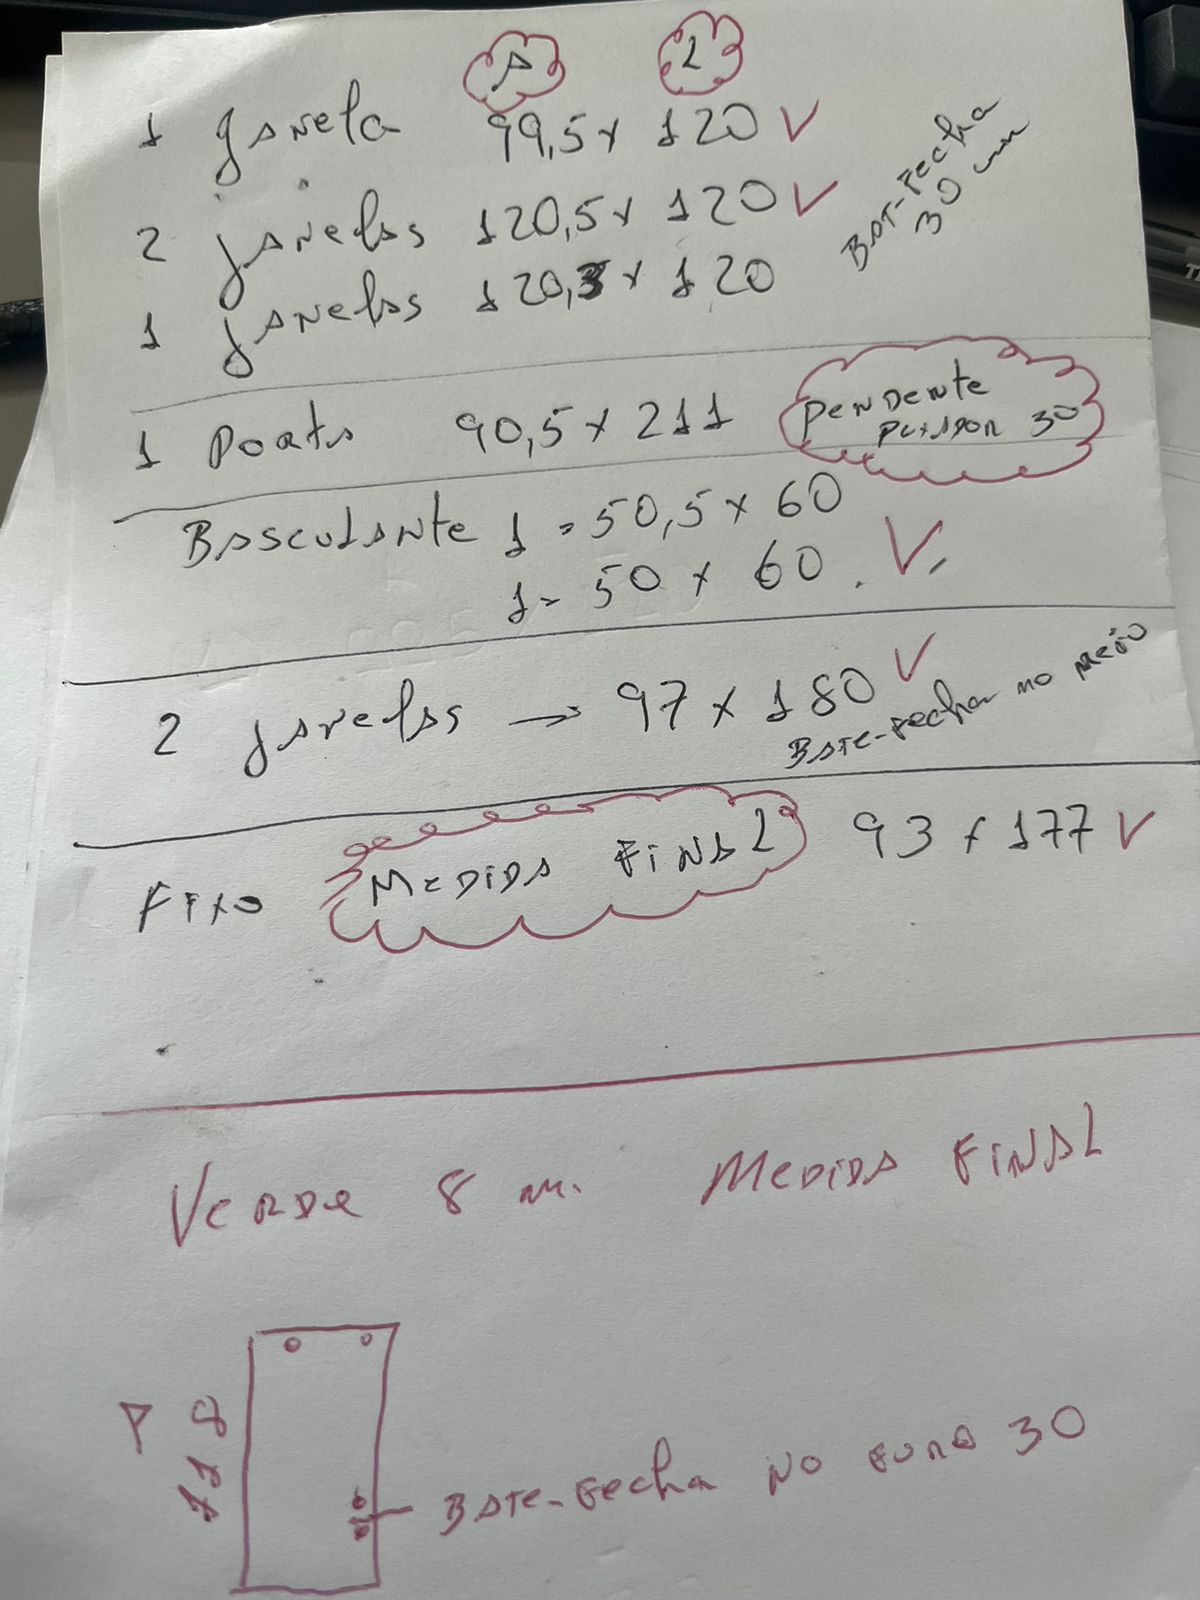 A L
1 Janela 99,5 x 120 V
2 Janelas 120,5 x 120 V
1 Janelas 120,3 x 120
BAT-Fecha
30 mm
1 Porta 90,5 x 211
Pendente
Puxador 30
Basculante 1 = 50,5 x 60
1 = 50 x 60 . V.
2 Janelas → 97 x 180 V
Bate-Fecha no meio
Fixo Medida Final 93 x 177 V
Verde 8 m. Medida Final
118
Bate-Fecha no Furo 30